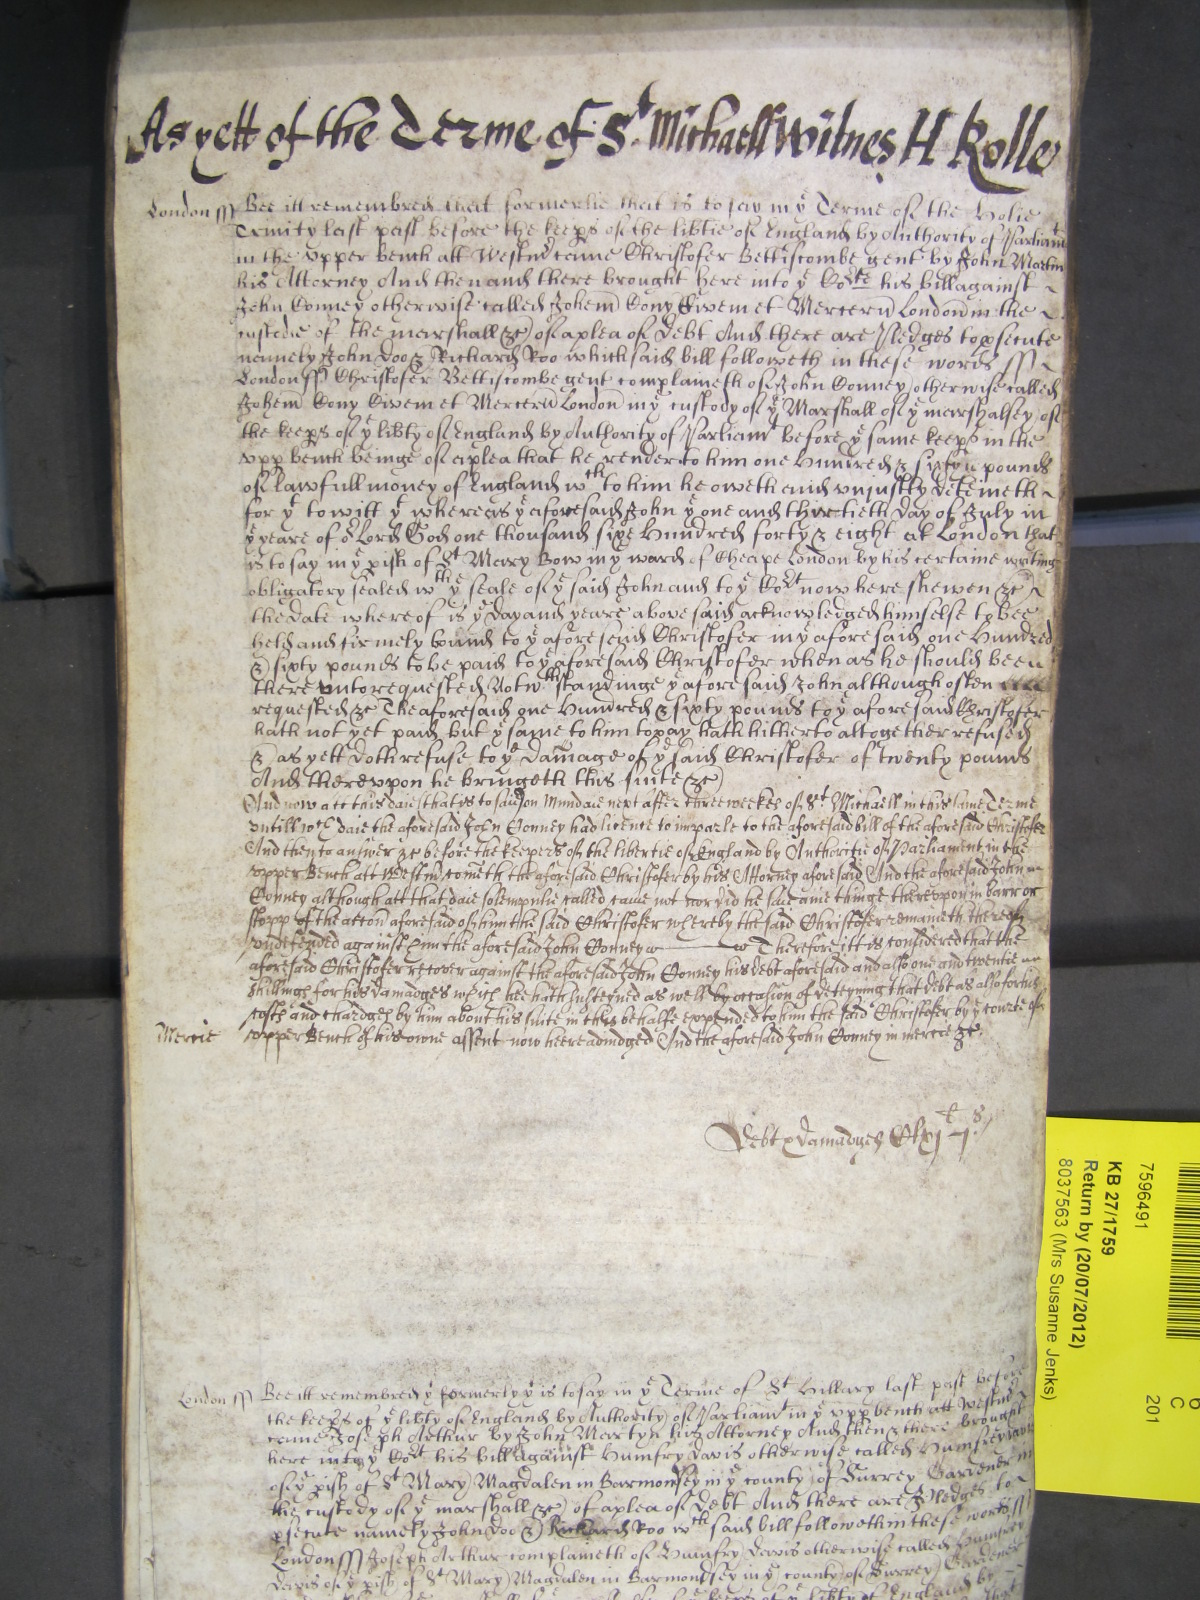 As yett of the Terme of St. Michaell Witnes H Rolle
London ss Bee itt remembred that formerlie that is to say in ye Terme of the Holie
Trinity last past before the keeps of the libtie of England by Authority of Parliamt
in the Upper bench att Westmr came Christofer Bettiscombe gent by John Martin
his Attorney And then and there brought here into ye Corte his bill against
John Conney otherwise called Johem Cony Civem et Mercern London in the
custodie of the marshall &c of a plea of Debt And there are Pledges to psecute
namely John Doo & Richard Roo which said bill followeth in these words ss
London ss Christofer Bettiscombe gent complaineth of John Conney otherwise called
Johem Cony Civem et Mercern London in ye custody of ye Marshall of ye marshalsey of
the keeps of ye libty of England by Authority of Parliamt before ye same keeps in the
upp bench beinge of a plea that he render to him one Hundred & sixty pounds
of lawfull money of England wch to him he oweth and unjustly deteineth
for yt to witt yt whereas ye aforesaid John ye one and thirtieth day of July in
ye yeare of or Lord God one thousand sixe Hundred forty & eight at London that
is to say in ye pish of St Mary Bow in ye ward of Cheape London by his certaine writing
obligatory sealed wth ye seale of ye said John and to ye Cort now here shewen &c
the date whereof is ye day and yeare above said acknowledged himselfe to bee
held and firmely bound to ye aforesaid Christofer in ye aforesaid one Hundred
& sixty pounds to be paid to ye aforesaid Christofer when as he should been
there unto requested Notwthstandinge ye aforesaid John although often
requested &c The aforesaid one Hundred & sixty pounds to ye aforesaid Christofer
hath not yet paid but ye same to him to pay hath hitherto altogether refused
& as yett doth refuse to ye damage of ye said Christofer of twenty pounds
And thereupon he bringeth this suite &c
And now att this daie that is to saie on Mundaie next after three weekes of St Michaell in this same Terme
untill wch daie the aforesaid John Conney had licence to imparle to the aforesaid bill of the aforesaid Christofer
And then to answer &c before the keepers of the libertie of England by Authoritie of Parliament in the
upper Bench att Westmr cometh the aforesaid Christofer by his Attorney aforesaid And the aforesaid John
Conney although att that daie solempnlie called came not nor did he saie anie thinge thereupon in barr or
stopp of the accon aforesaid of him the said Christofer whereby the said Christofer remaineth thereof
undefended against him the aforesaid John Conney Therefore itt is considered that the
aforesaid Christofer recover against the aforesaid John Conney his debt aforesaid and also one and twentie
shillings for his damadges which hee hath susteyned as well by occasion of deteyning that debt as also for his
costs and chardges by him about his suite in this behalfe expended to him the said Christofer by ye courte of
Mercie upper Bench of his owne assent now heere adiudged And the aforesaid John Conney in mercie &c.
Debt & damadges Clxj l j s
London ss Bee itt remembred yt formerly yt is to say in ye Terme of St Hillary last past before
the keeps of ye libty of England by Authority of Parliamt in ye upp bench att Westmr
came Joseph Arthur by John Martyn his Attorney And then & there brought
here into ye Cort his bill against Humfry Davis otherwise called Humfrey Davis
of ye pish of St Mary Magdalen in Barmondsey in ye county of Surrey Gardener in
the custody of ye marshall &c of a plea of Debt And there are Pledges to
psecute namely John Doo & Richard Roo wch said bill followeth in these words ss
London ss Joseph Arthur complaineth of Humfry Davis otherwise called Humfrey
Davis of ye pish of St Mary Magdalen in Barmondsey in ye county of Surrey Gardener
7596491
KB 27/1759
Return by (20/07/2012)
8037563 (Mrs Susanne Jenks)
6
C
201